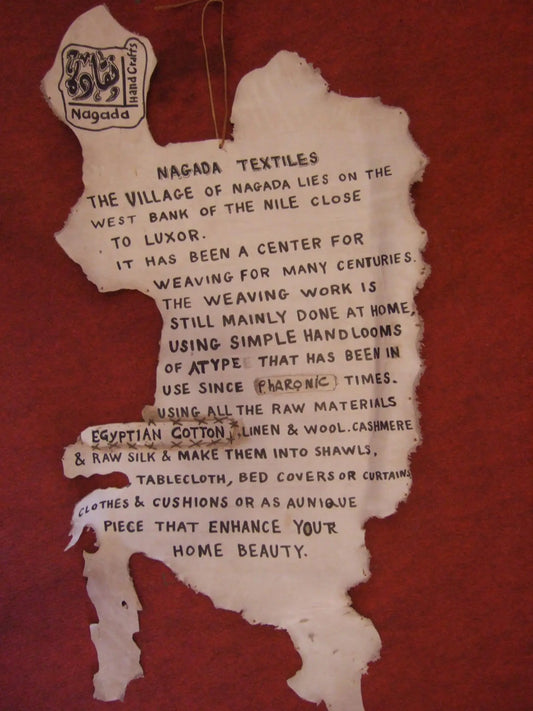 نقادة
Hand Crafts
Nagada
NAGADA TEXTILES
THE VILLAGE OF NAGADA LIES ON THE
WEST BANK OF THE NILE CLOSE
TO LUXOR.
IT HAS BEEN A CENTER FOR
WEAVING FOR MANY CENTURIES.
THE WEAVING WORK IS
STILL MAINLY DONE AT HOME,
USING SIMPLE HANDLOOMS
OF ATYPE THAT HAS BEEN IN
USE SINCE PhARONIC TIMES.
USING ALL THE RAW MATERIALS
EGYPTIAN COTTON, LINEN & WOOL.CASHMERE
& RAW SILK & MAKE THEM INTO SHAWLS,
TABLECLOTH, BED COVERS OR CURTAINS
CLOTHES & CUSHIONS OR AS AUNIQUE
PIECE THAT ENHANCE YOUR
HOME BEAUTY.